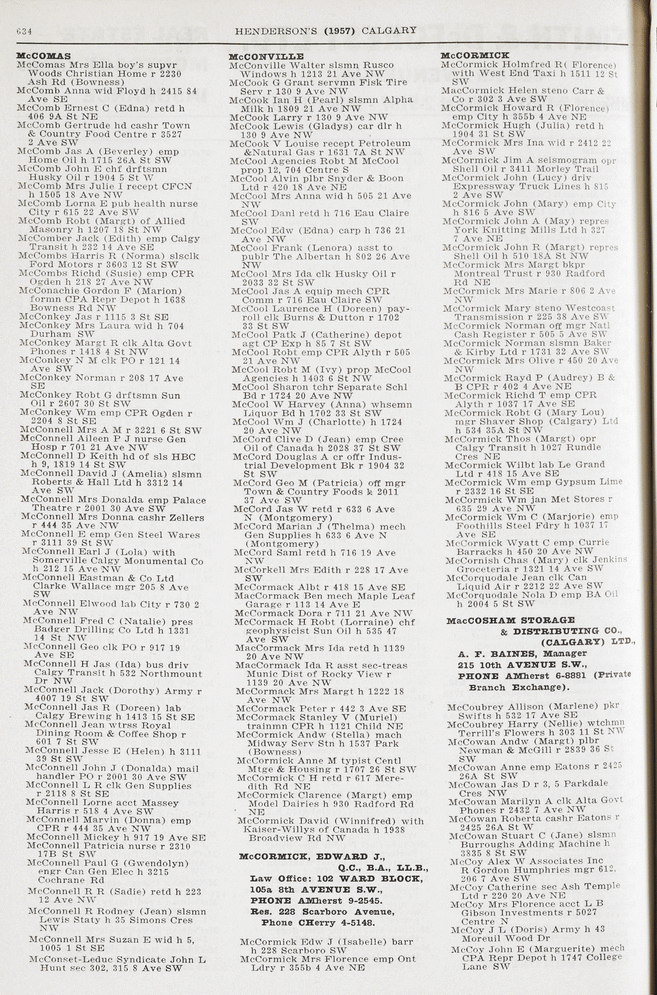 634
HENDERSON'S (1957) CALGARY
McCOMAS
McComas Mrs Ella boy's supvr
Woods Christian Home r 2230
Ash Rd (Bowness)
McComb Anna wid Floyd h 2415 84
Ave SE
McComb Ernest C (Edna) retd h
406 9A St NE
McComb Gertrude hd cashr Town
& Country Food Centre r 3527
2 Ave SW
McComb Jas A (Beverley) emp
Home Oil h 1715 26A St SW
McComb John E chf drftsmn
Husky Oil r 1904 5 St W
McComb Mrs Julie I recept CFCN
h 1505 18 Ave NW
McComb Lorna E pub health nurse
City r 615 22 Ave SW
McComb Robt (Margt) of Allied
Masonry h 1207 18 St NW
McComber Jack (Edith) emp Calgy
Transit h 232 14 Ave SE
McCombs Harris R (Norma) slsclk
Ford Motors r 3603 12 St SW
McCombs Richd (Susie) emp CPR
Ogden h 218 27 Ave NW
McConachie Gordon F (Marion)
formn CPA Repr Depot h 1638
Bowness Rd NW
McConkey Jas r 1115 3 St SE
McConkey Mrs Laura wid h 704
Durham SW
McConkey Margt R clk Alta Govt
Phones r 1418 4 St NW
McConkey N M clk PO r 121 14
Ave SW
McConkey Norman r 208 17 Ave
SE
McConkey Robt G drftsmn Sun
Oil r 2607 30 St SW
McConkey Wm emp CPR Ogden r
2204 8 St SE
McConnell Mrs A M r 3221 6 St SW
McConnell Aileen P J nurse Gen
Hosp r 701 21 Ave NW
McConnell D Keith hd of sls HBC
h 9, 1819 14 St SW
McConnell David J (Amelia) slsmn
Roberts & Hall Ltd h 3312 14
Ave SW
McConnell Mrs Donalda emp Palace
Theatre r 2001 30 Ave SW
McConnell Mrs Donna cashr Zellers
r 444 35 Ave NW
McConnell E emp Gen Steel Wares
r 3111 39 St SW
McConnell Earl J (Lola) with
Somerville Calgy Monumental Co
h 212 15 Ave NW
McConnell Eastman & Co Ltd
Clarke Wallace mgr 205 8 Ave
SW
McConnell Elwood lab City r 730 2
Ave NW
McConnell Fred C (Natalie) pres
Badger Drilling Co Ltd h 1331
14 St NW
McConnell Geo clk PO r 917 19
Ave SE
McConnell H Jas (Ida) bus driv
Calgy Transit h 532 Northmount
Dr NW
McConnell Jack (Dorothy) Army r
4007 19 St SW
McConnell Jas R (Doreen) lab
Calgy Brewing h 1413 15 St SE
McConnell Jean wtrss Royal
Dining Room & Coffee Shop r
601 7 St SW
McConnell Jesse E (Helen) h 3111
39 St SW
McConnell John J (Donalda) mail
handler PO r 2001 30 Ave SW
McConnell L R clk Gen Supplies
r 2118 8 St SE
McConnell Lorne acct Massey
Harris r 518 4 Ave SW
McConnell Marvin (Donna) emp
CPR r 444 35 Ave NW
McConnell Mickey h 917 19 Ave SE
McConnell Patricia nurse r 2310
17B St SW
McConnell Paul G (Gwendolyn)
engr Can Gen Elec h 3215
Cochrane Rd
McConnell R R (Sadie) retd h 223
12 Ave NW
McConnell R Rodney (Jean) slsmn
Lewis Staty h 35 Simons Cres
NW
McConnell Mrs Suzan E wid h 5,
1005 1 St SE
McConset-Leduc Syndicate John L
Hunt sec 302, 315 8 Ave SW
McCONVILLE
McConville Walter slsmn Rusco
Windows h 1213 21 Ave NW
McCook G Grant servmn Fisk Tire
Serv r 130 9 Ave NW
McCook Ian H (Pearl) slsmn Alpha
Milk h 1809 21 Ave NW
McCook Larry r 130 9 Ave NW
McCook Lewis (Gladys) car dlr h
130 9 Ave NW
McCook V Louise recept Petroleum
&Natural Gas r 1631 7A St NW
McCool Agencies Robt M McCool
prop 12, 704 Centre S
McCool Alvin plbr Snyder & Boon
Ltd r 420 18 Ave NE
McCool Mrs Anna wid h 505 21 Ave
NW
McCool Danl retd h 716 Eau Claire
SW
McCool Edw (Edna) carp h 736 21
Ave NW
McCool Frank (Lenora) asst to
publr The Albertan h 802 26 Ave
NW
McCool Mrs Ida clk Husky Oil r
2033 32 St SW
McCool Jas A equip mech CPR
Comm r 716 Eau Claire SW
McCool Laurence H (Doreen) pay-
roll clk Burns & Dutton r 1702
33 St SW
McCool Patk J (Catherine) depot
agt CP Exp h 85 7 St SW
McCool Robt emp CPR Alyth r 505
21 Ave NW
McCool Robt M (Ivy) prop McCool
Agencies h 1403 6 St NW
McCool Sharon tchr Separate Schl
Bd r 1724 20 Ave NW
McCool W Harvey (Anna) whsemn
Liquor Bd h 1702 33 St SW
McCool Wm J (Charlotte) h 1724
20 Ave NW
McCord Clive D (Jean) emp Cree
Oil of Canada h 2028 37 St SW
McCord Douglas A cr offr Indus-
trial Development Bk r 1904 32
St SW
McCord Geo M (Patricia) off mgr
Town & Country Foods h 2011
37 Ave SW
McCord Jas W retd r 633 6 Ave
N (Montgomery)
McCord Marian J (Thelma) mech
Gen Supplies h 633 6 Ave N
(Montgomery)
McCord Saml retd h 716 19 Ave
NW
McCorkell Mrs Edith r 228 17 Ave
SW
McCormack Albt r 418 15 Ave SE
MacCormack Ben mech Maple Leaf
Garage r 113 14 Ave E
McCormack Dora r 711 21 Ave NW
McCormack H Robt (Lorraine) chf
geophysicist Sun Oil h 535 47
Ave SW
MacCormack Mrs Ida retd h 1139
20 Ave NW
MacCormack Ida R asst sec-treas
Munic Dist of Rocky View r
1139 20 Ave NW
McCormack Mrs Margt h 1222 18
Ave NW
McCormack Peter r 442 3 Ave SE
McCormack Stanley V (Muriel)
trainmn CPR h 1121 Child NE
McCormick Andw (Stella) mach
Midway Serv Stn h 1537 Park
(Bowness)
McCormick Anne M typist Centl
Mtge & Housing r 1707 26 St SW
McCormick C H retd r 617 Mere-
dith Rd NE
McCormick Clarence (Margt) emp
Model Dairies h 930 Radford Rd
NE
McCormick David (Winnifred) with
Kaiser-Willys of Canada h 1938
Broadview Rd NW
McCORMICK, EDWARD J.,
Q.C., B.A., LL.B.,
Law Office: 102 WARD BLOCK,
105a 8th AVENUE S.W.,
PHONE AMherst 9-2545.
Res. 228 Scarboro Avenue,
Phone CHerry 4-5148.
McCormick Edw J (Isabelle) barr
h 228 Scarboro SW
McCormick Mrs Florence emp Ont
Ldry r 355b 4 Ave NE
McCORMICK
McCormick Holmfred R( Florence)
with West End Taxi h 1511 12 St
SW
MacCormick Helen steno Carr &
Co r 302 3 Ave SW
McCormick Howard R (Florence)
emp City h 355b 4 Ave NE
McCormick Hugh (Julia) retd h
1904 31 St SW
McCormick Mrs Ina wid r 2412 22
Ave SW
McCormick Jim A seismogram opr
Shell Oil r 3411 Morley Trail
McCormick John (Lucy) driv
Expressway Truck Lines h 815
2 Ave SW
McCormick John (Mary) emp City
h 816 5 Ave SW
McCormick John A (May) repres
York Knitting Mills Ltd h 327
7 Ave NE
McCormick John R (Margt) repres
Shell Oil h 510 18A St NW
McCormick Mrs Margt bkpr
Montreal Trust r 930 Radford
Rd NE
McCormick Mrs Marie r 806 2 Ave
NW
McCormick Mary steno Westcoast
Transmission r 225 38 Ave SW
McCormick Norman off mgr Natl
Cash Register r 505 5 Ave SW
McCormick Norman slsmn Baker
& Kirby Ltd r 1731 32 Ave SW
McCormick Mrs Olive r 450 20 Ave
NW
McCormick Rayd P (Audrey) B &
B CPR r 402 4 Ave NE
McCormick Richd T emp CPR
Alyth r 1037 17 Ave SE
McCormick Robt G (Mary Lou)
mgr Shaver Shop (Calgary) Ltd
h 534 35A St NW
McCormick Thos (Margt) opr
Calgy Transit h 1027 Rundle
Cres NE
McCormick Wilbt lab Le Grand
Ltd r 418 15 Ave SE
McCormick Wm emp Gypsum Lime
r 2332 16 St SE
McCormick Wm jan Met Stores r
635 29 Ave NW
McCormick Wm C (Marjorie) emp
Foothills Steel Fdry h 1037 17
Ave SE
McCormick Wyatt C emp Currie
Barracks h 450 20 Ave NW
McCornish Chas (Mary) clk Jenkins
Groceteria r 1321 14 Ave SW
McCorquodale Jean clk Can
Liquid Air r 2212 22 Ave SW
McCorquodale Nola D emp BA Oil
h 2004 5 St SW
MacCOSHAM STORAGE
& DISTRIBUTING CO.,
(CALGARY) LTD.,
A. F. BAINES, Manager
215 10th AVENUE S.W.,
PHONE AMherst 6-8881 (Private
Branch Exchange).
McCoubrey Allison (Marlene) pkr
Swifts h 532 17 Ave SE
McCoubrey Harry (Nellie) wtchmn
Terrill's Flowers h 303 11 St NW
McCowan Andw (Margt) plbr
Newman & McGill r 2839 36 St
SW
McCowan Anne emp Eatons r 2425
26A St SW
McCowan Jas D r 3, 5 Parkdale
Cres NW
McCowan Marilyn A clk Alta Govt
Phones r 2432 7 Ave NW
McCowan Roberta cashr Eatons r
2425 26A St W
McCowan Stuart C (Jane) slsmn
Burroughs Adding Machine h
3835 8 St SW
McCoy Alex W Associates Inc
R Gordon Humphries mgr 612,
206 7 Ave SW
McCoy Catherine sec Ash Temple
Ltd r 220 20 Ave NE
McCoy Mrs Florence acct L B
Gibson Investments r 5027
Centre N
McCoy J L (Doris) Army h 43
Moreuil Wood Dr
McCoy John E (Marguerite) mech
CPA Repr Depot h 1747 College
Lane SW